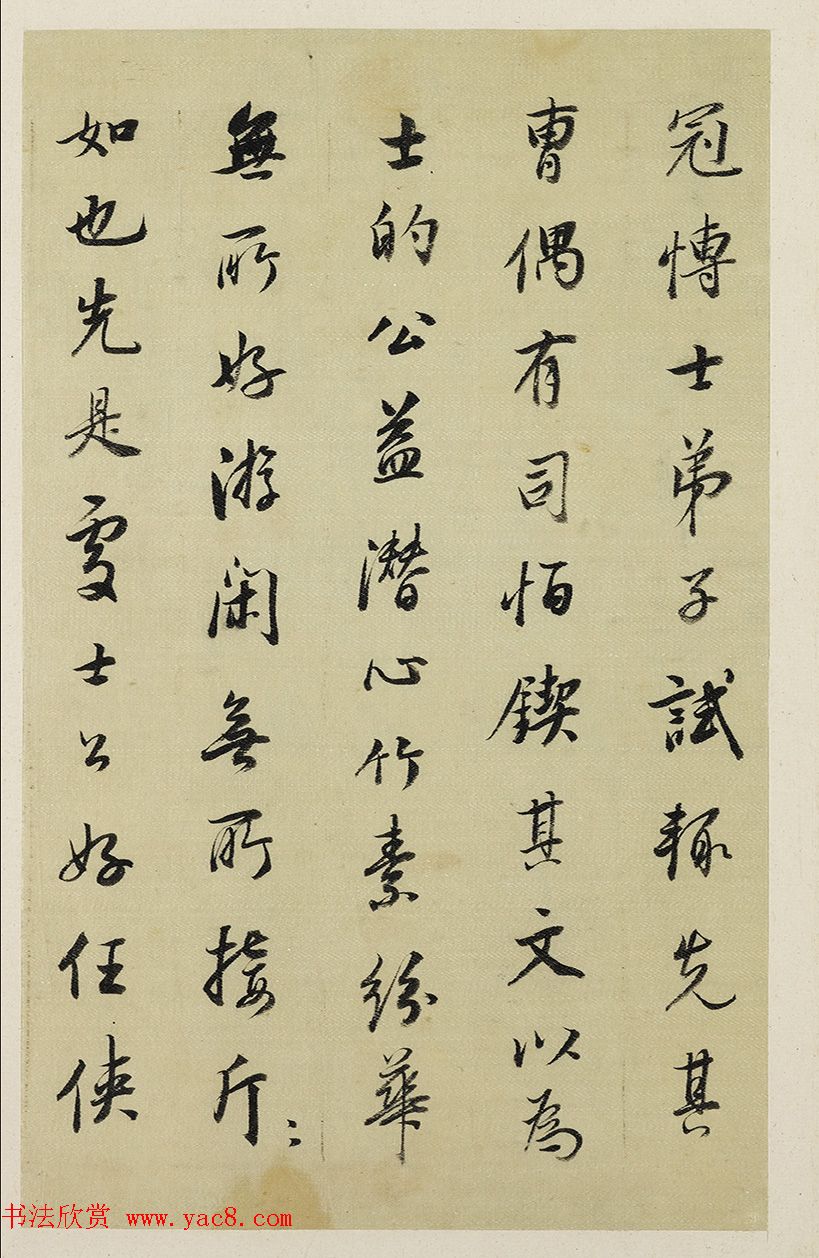 冠博士弟子試輒先其
曹偶有司恒鍥其文以為
士的公益潛心竹素紛華
無所好游閑無所接斤〻
如也先是處士公好任俠
书法欣赏 www.yac8.com